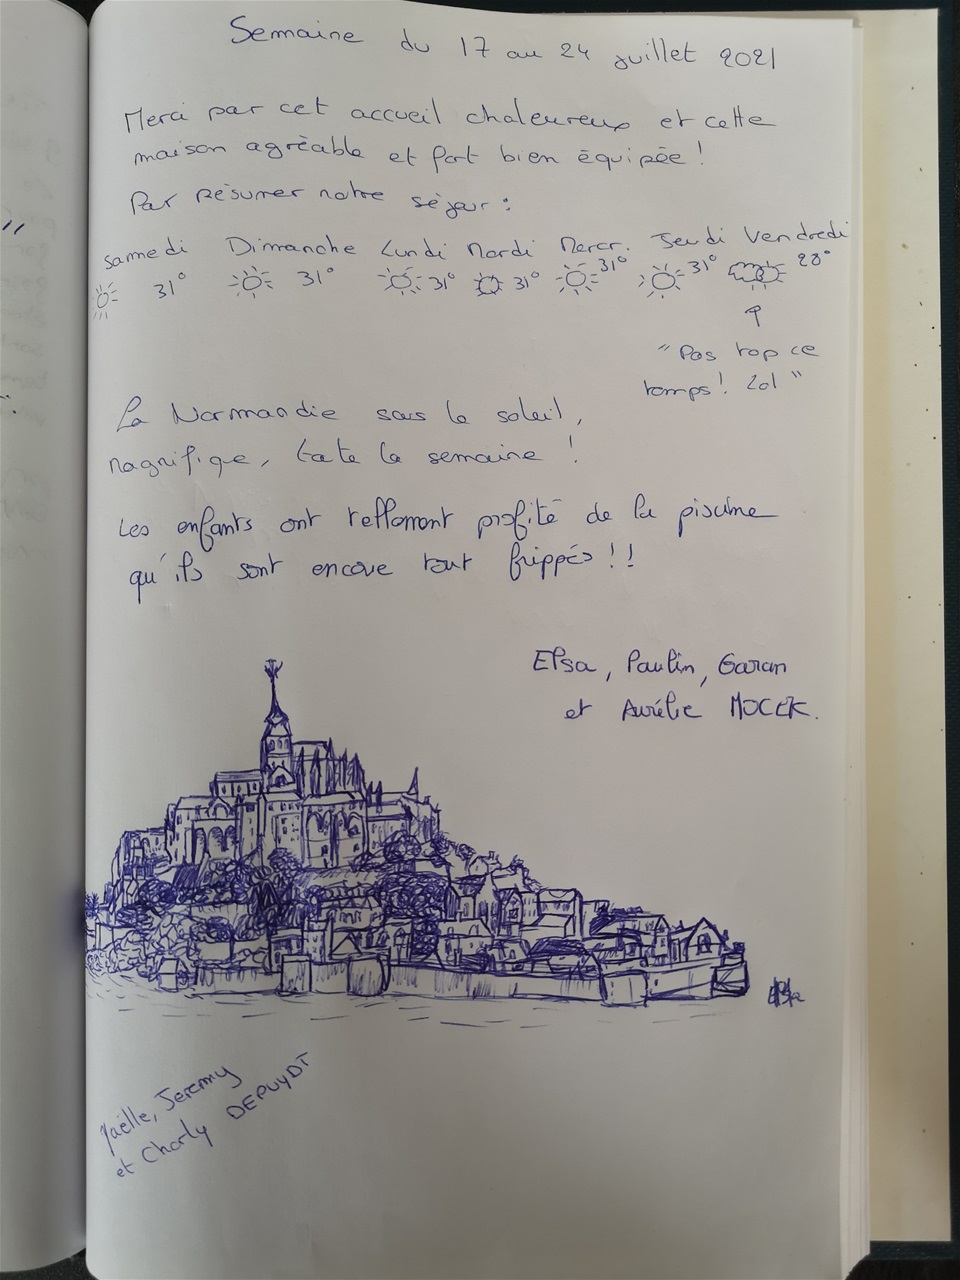 Semaine du 17 au 24 juillet 2021
Merci pour cet accueil chaleureux et cette
maison agréable et fort bien équipée !
Pour résumer notre séjour :
Samedi Dimanche Lundi Mardi Mercr. Jeudi Vendredi
31° 31° 31° 31° 31° 31° 28°
"Pas top ce
temps ! Lol"
La Normandie sous le soleil,
magnifique, toute la semaine !
Les enfants ont tellement profité de la piscine
qu'ils sont encore tout frippés !!
Elsa, Paulin,
et Aurélie MOCEK.
Jeremy
et Charly DEPUYDT